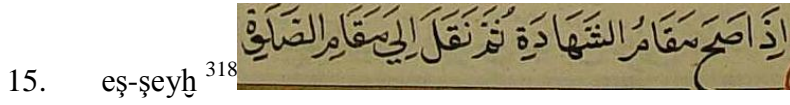 15. eş-şeyḫ 318 اِذَا صَحَّ مَقَامُ الشَّهَادَةِ ثُمَّ نَقَلَ اِلٰي مَقَامِ الصَّلٰوةِ